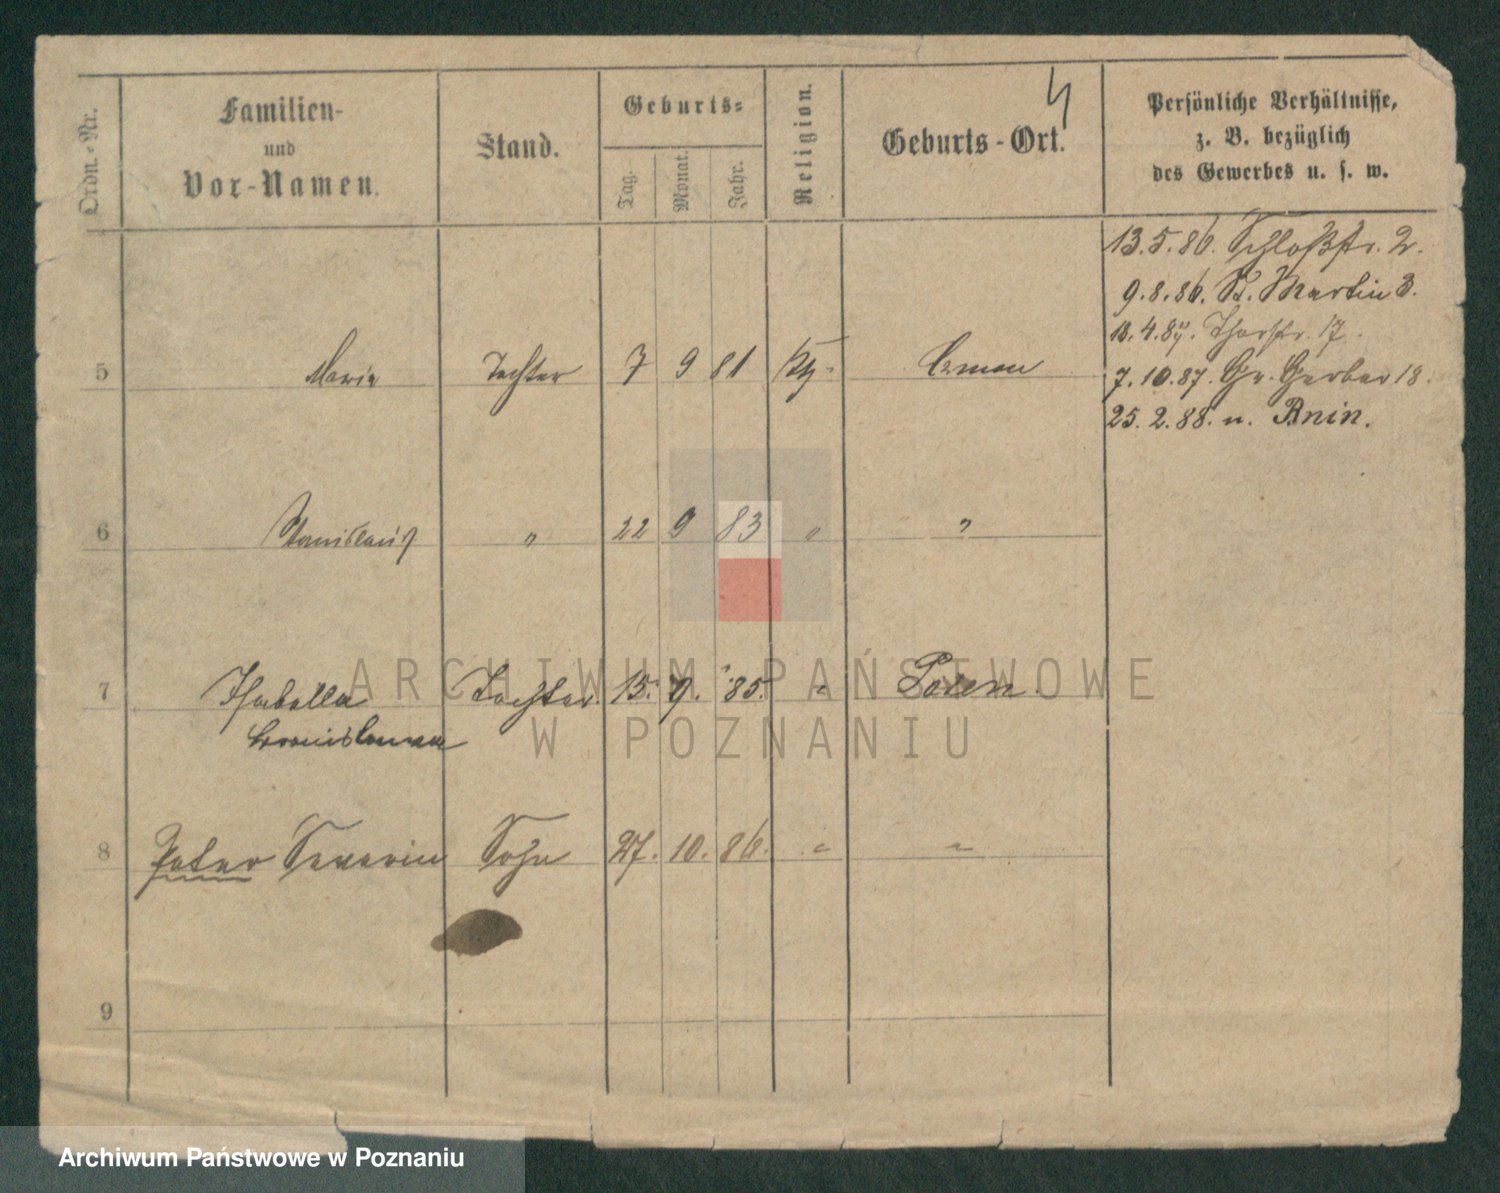 Ordn.-Nr.
Familien-
und
Vor-Namen.
Stand.
Geburts-
Tag.
Monat.
Jahr.
Religion.
Geburts-Ort.
4
Persönliche Verhältnisse,
z. B. bezüglich
des Gewerbes u. s. w.
13.5.86. Schloßstr. 2.
9.8.86. St. Martin 3.
7.10.87. Gr. Gerber 18.
25.2.88. n. Bnin.
5 Maria Tochter 7 9 81 Kth.
6 " 22 9 83 " "
7 Isabella Tochter. 15. 9. 85. " Posen
Bronislawa
8 Peter Severin Sohn 27. 10. 86. " "
9
ARCHIWUM PAŃSTWOWE
W POZNANIU
Archiwum Państwowe w Poznaniu